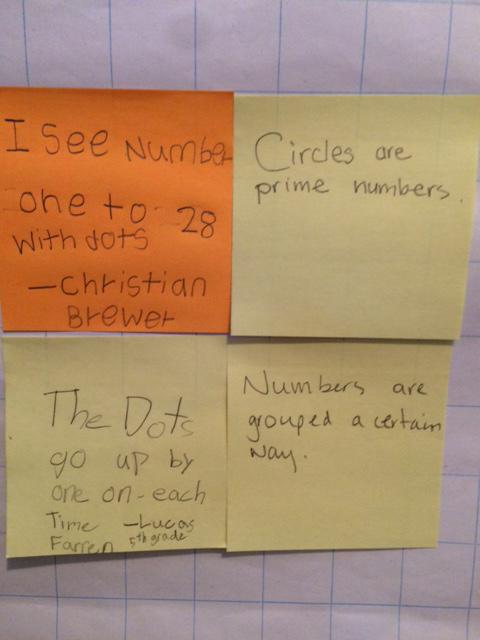 I See Number
one to 28
with dots
—christian
Brewer
Circles are
prime numbers.
The Dots
go up by
one on-each
Time —Lucas
Farren 5th grade
Numbers are
grouped a certain
way.